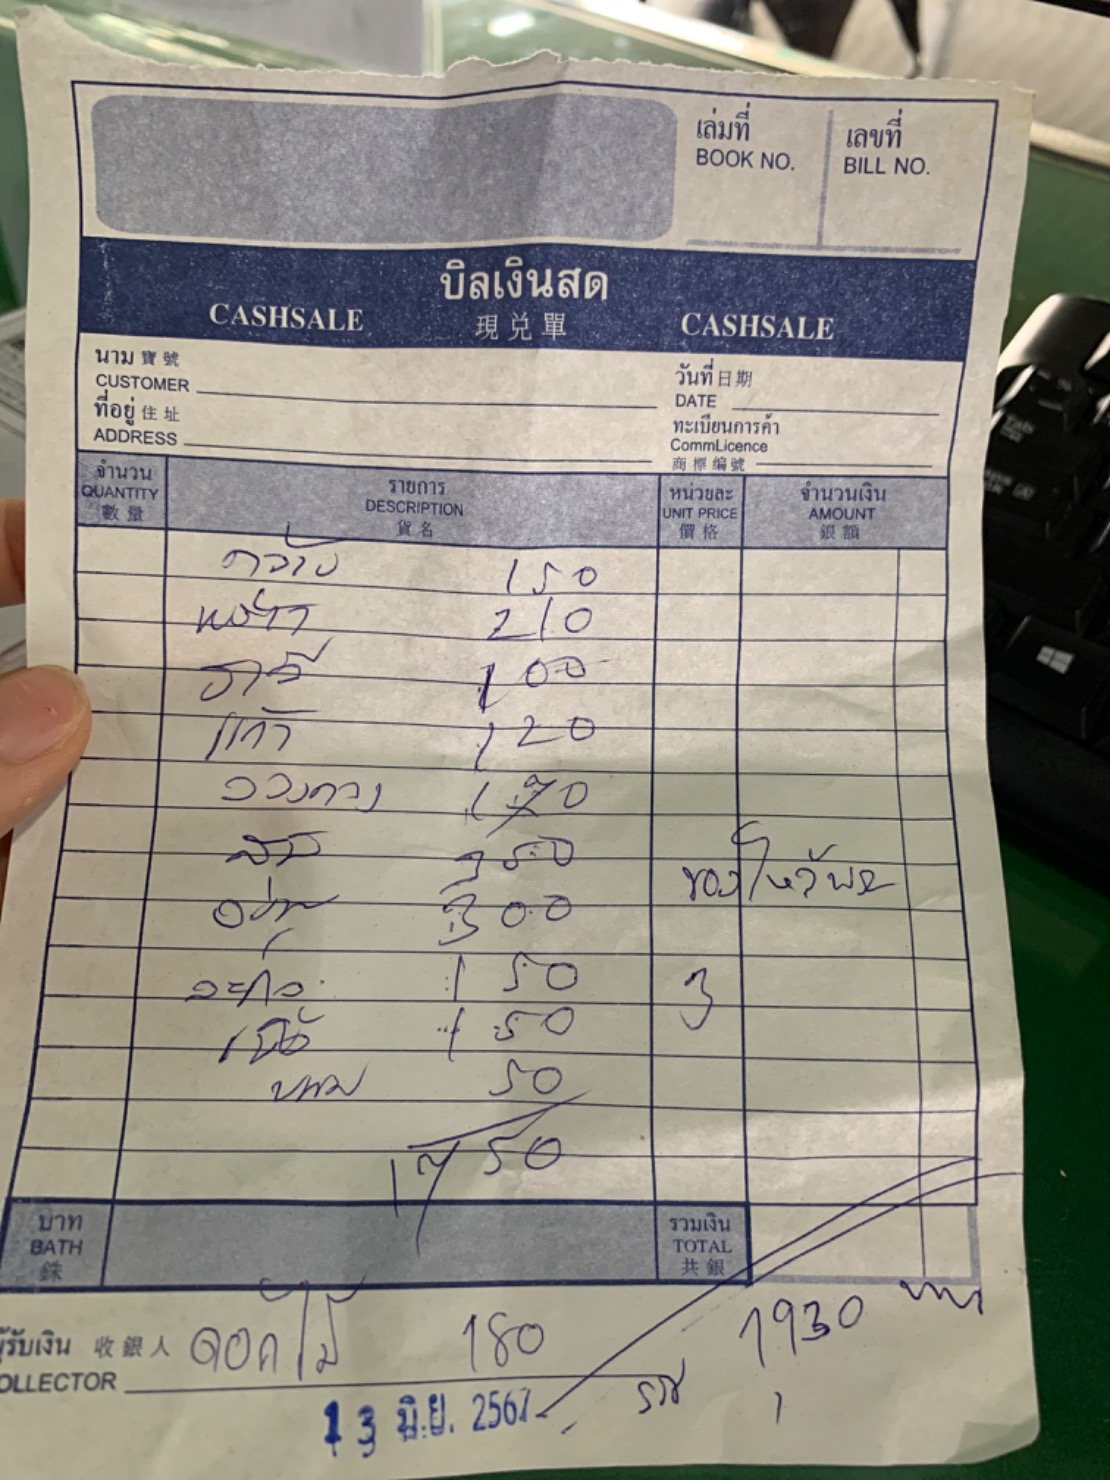 เล่มที่ เลขที่
BOOK NO. BILL NO.
บิลเงินสด
CASHSALE 現兑單 CASHSALE
นาม 寶號 วันที่ 日期
CUSTOMER DATE
ที่อยู่ 住址 ทะเบียนการค้า
ADDRESS CommLicence
商標編號
จำนวน รายการ หน่วยละ จำนวนเงิน
QUANTITY DESCRIPTION UNIT PRICE AMOUNT
數量 貨名 價格 銀額
150
210
100
แก้ว 120
170
ส้ม 350
องุ่น 300
ของไหว้พระ
150
150
50
1750
บาท รวมเงิน
BATH TOTAL
銖 共銀
ผู้รับเงิน 收銀人 ดอกไม้ 180
1930 บาท
COLLECTOR
รวม
13 มิ.ย. 2567